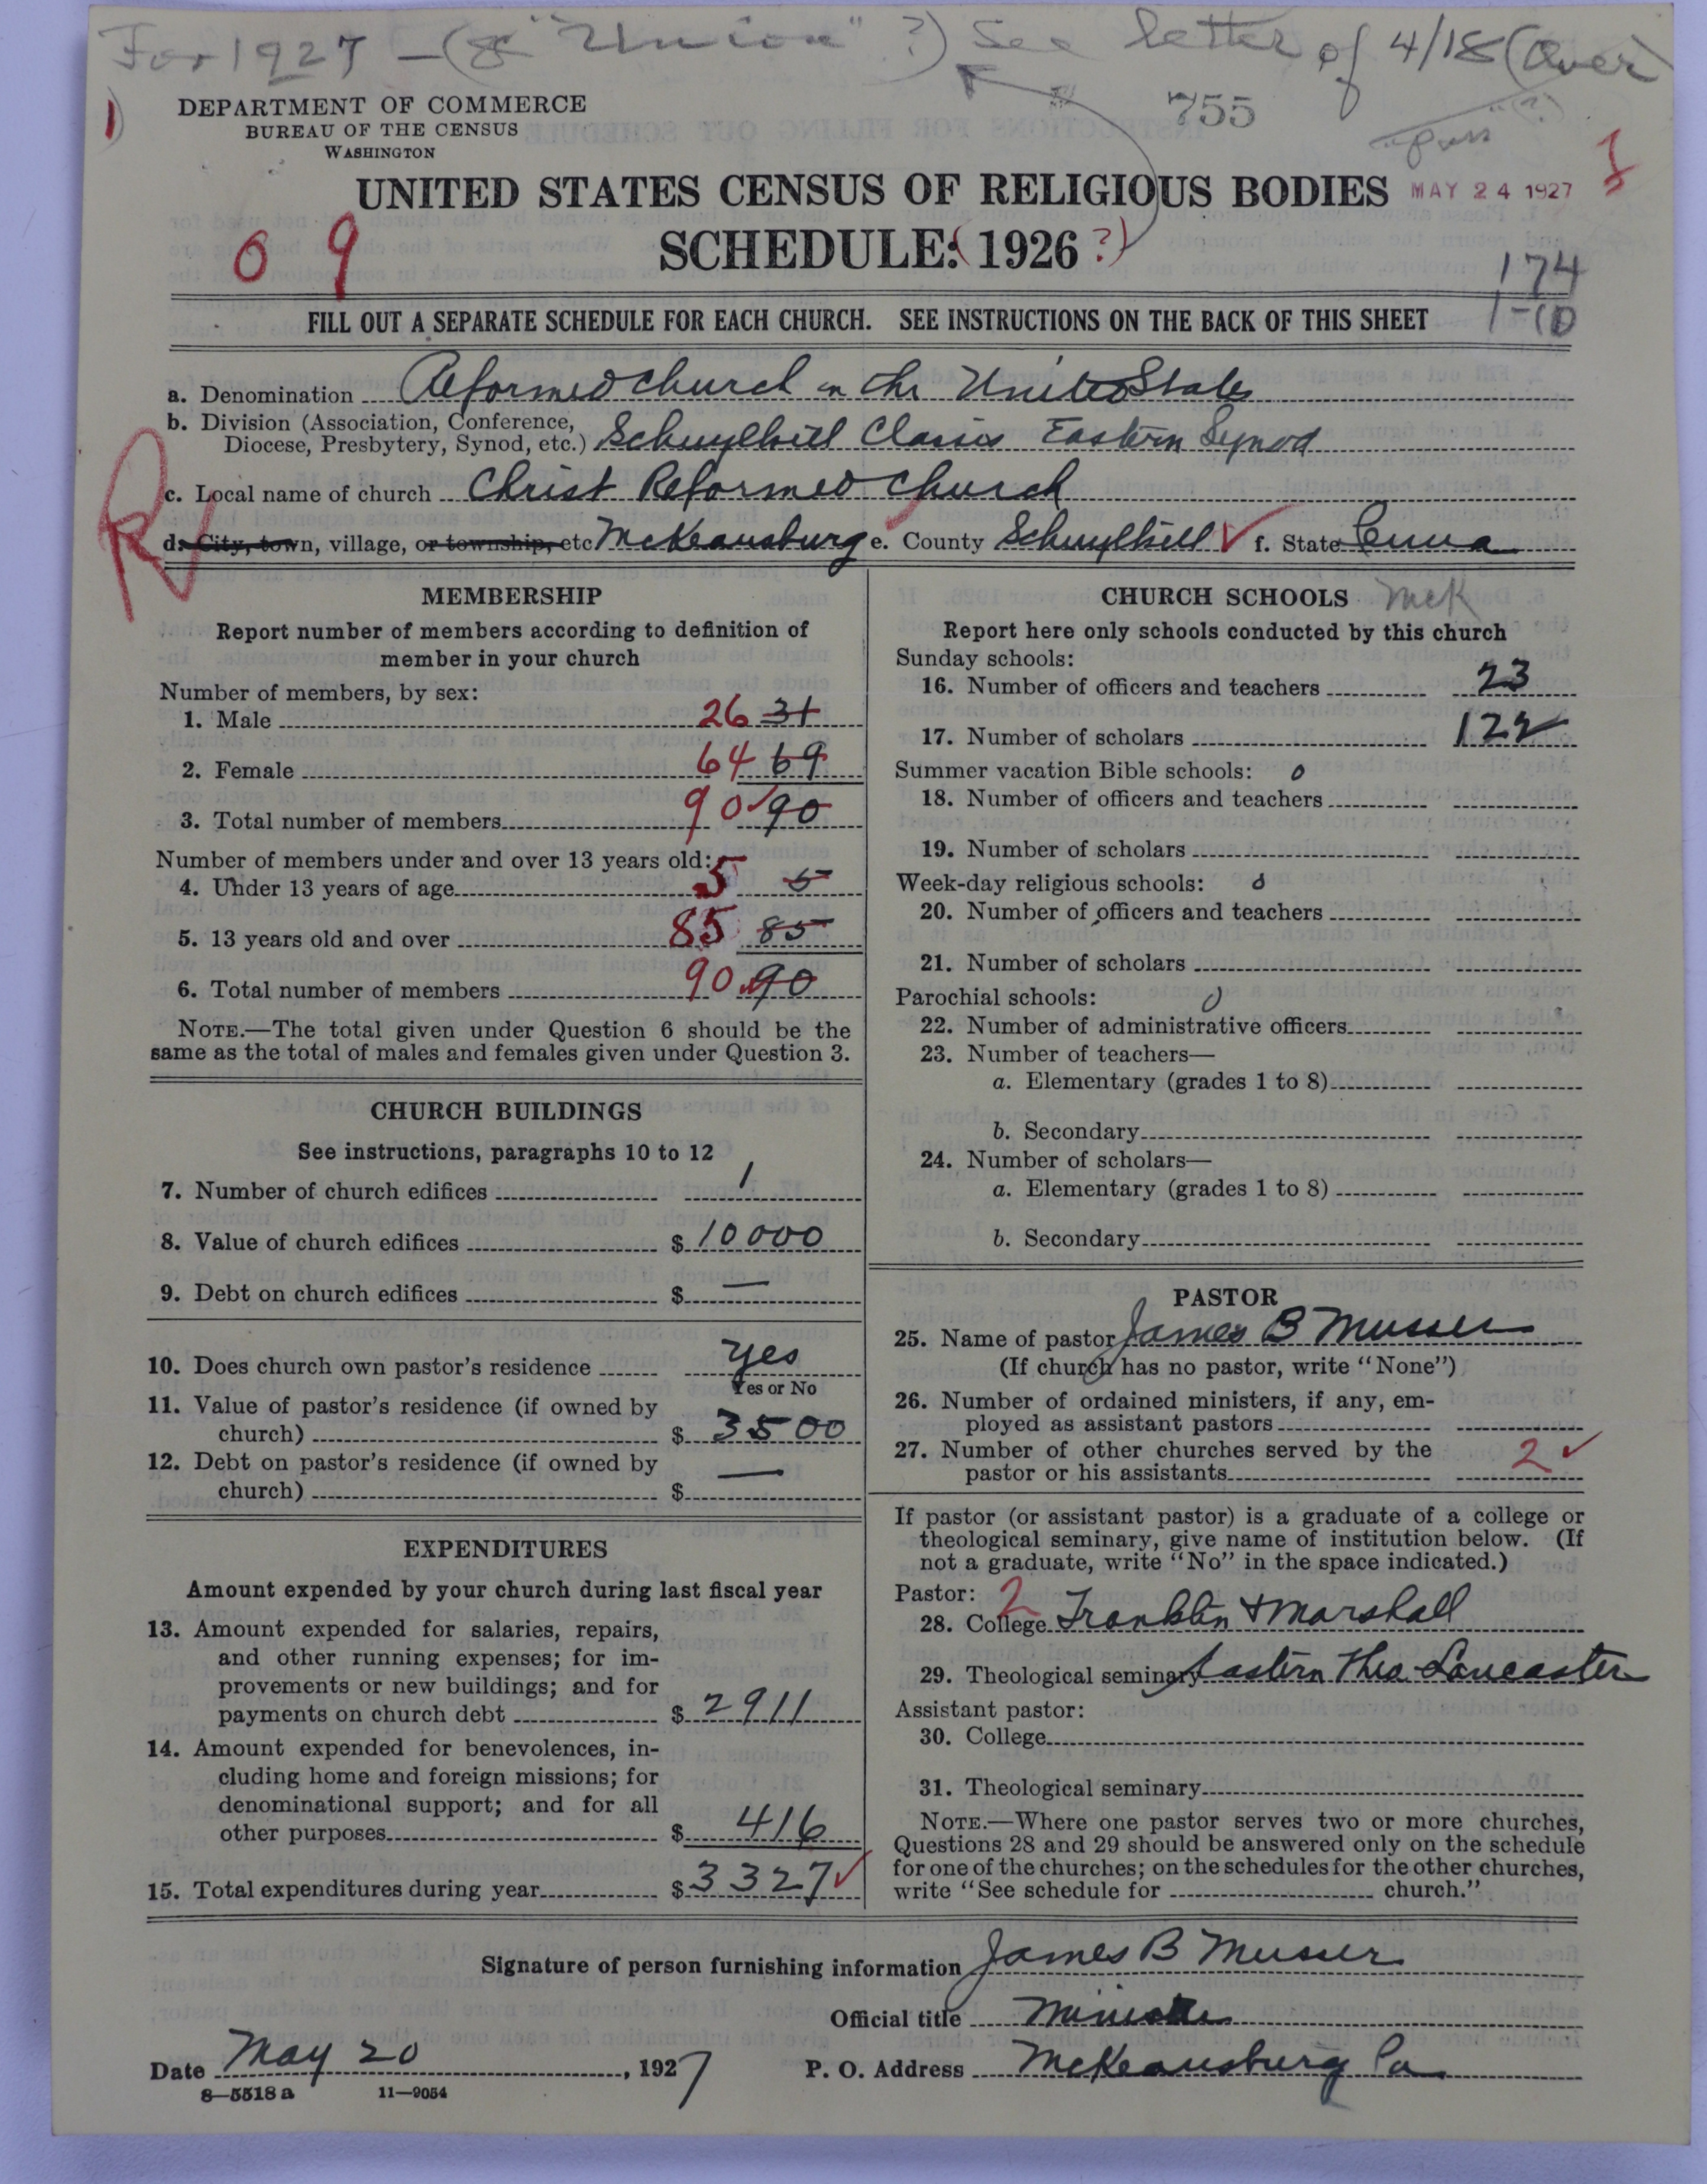 For 1927 - ( "Union" ?) See letter of 4/18 (Over)
1)
DEPARTMENT OF COMMERCE
BUREAU OF THE CENSUS
WASHINGTON
755
UNITED STATES CENSUS OF RELIGIOUS BODIES
MAY 24 1927
SCHEDULE: (1926?)
0 9
174
1-10
FILL OUT A SEPARATE SCHEDULE FOR EACH CHURCH. SEE INSTRUCTIONS ON THE BACK OF THIS SHEET
a. Denomination Reformed Church in the United States
b. Division (Association, Conference,
Diocese, Presbytery, Synod, etc.) Schuylkill Classis Eastern Synod
c. Local name of church Christ Reformed Church
d. City, town, village, or township, etc McKeansburg e. County Schuylkill f. State Penna
MEMBERSHIP
Report number of members according to definition of
member in your church
Number of members, by sex:
1. Male 26 31
2. Female 64 69
3. Total number of members 90 90
Number of members under and over 13 years old:
4. Under 13 years of age 5 5
5. 13 years old and over 85 85
6. Total number of members 90 90
NOTE.—The total given under Question 6 should be the
same as the total of males and females given under Question 3.
CHURCH BUILDINGS
See instructions, paragraphs 10 to 12
7. Number of church edifices 1
8. Value of church edifices $ 10000
9. Debt on church edifices $ —
10. Does church own pastor's residence yes
Yes or No
11. Value of pastor's residence (if owned by
church) $ 3500
12. Debt on pastor's residence (if owned by
church) $ —
EXPENDITURES
Amount expended by your church during last fiscal year
13. Amount expended for salaries, repairs,
and other running expenses; for im-
provements or new buildings; and for
payments on church debt $ 2911
14. Amount expended for benevolences, in-
cluding home and foreign missions; for
denominational support; and for all
other purposes $ 416
15. Total expenditures during year $ 3327
CHURCH SCHOOLS McK
Report here only schools conducted by this church
Sunday schools:
16. Number of officers and teachers 23
17. Number of scholars 122
Summer vacation Bible schools: 0
18. Number of officers and teachers
19. Number of scholars
Week-day religious schools: 0
20. Number of officers and teachers
21. Number of scholars
Parochial schools: 0
22. Number of administrative officers
23. Number of teachers—
a. Elementary (grades 1 to 8)
b. Secondary
24. Number of scholars—
a. Elementary (grades 1 to 8)
b. Secondary
PASTOR
25. Name of pastor James B Musser
(If church has no pastor, write "None")
26. Number of ordained ministers, if any, em-
ployed as assistant pastors
27. Number of other churches served by the
pastor or his assistants 2
If pastor (or assistant pastor) is a graduate of a college or
theological seminary, give name of institution below. (If
not a graduate, write "No" in the space indicated.)
Pastor: 2
28. College Franklin & Marshall
29. Theological seminary Eastern Theo. Lancaster
Assistant pastor:
30. College
31. Theological seminary
NOTE.—Where one pastor serves two or more churches,
Questions 28 and 29 should be answered only on the schedule
for one of the churches; on the schedules for the other churches,
write "See schedule for church."
Signature of person furnishing information James B Musser
Official title Minister
Date May 20, 1927
P. O. Address McKeansburg Pa
8—5518 a 11—9054